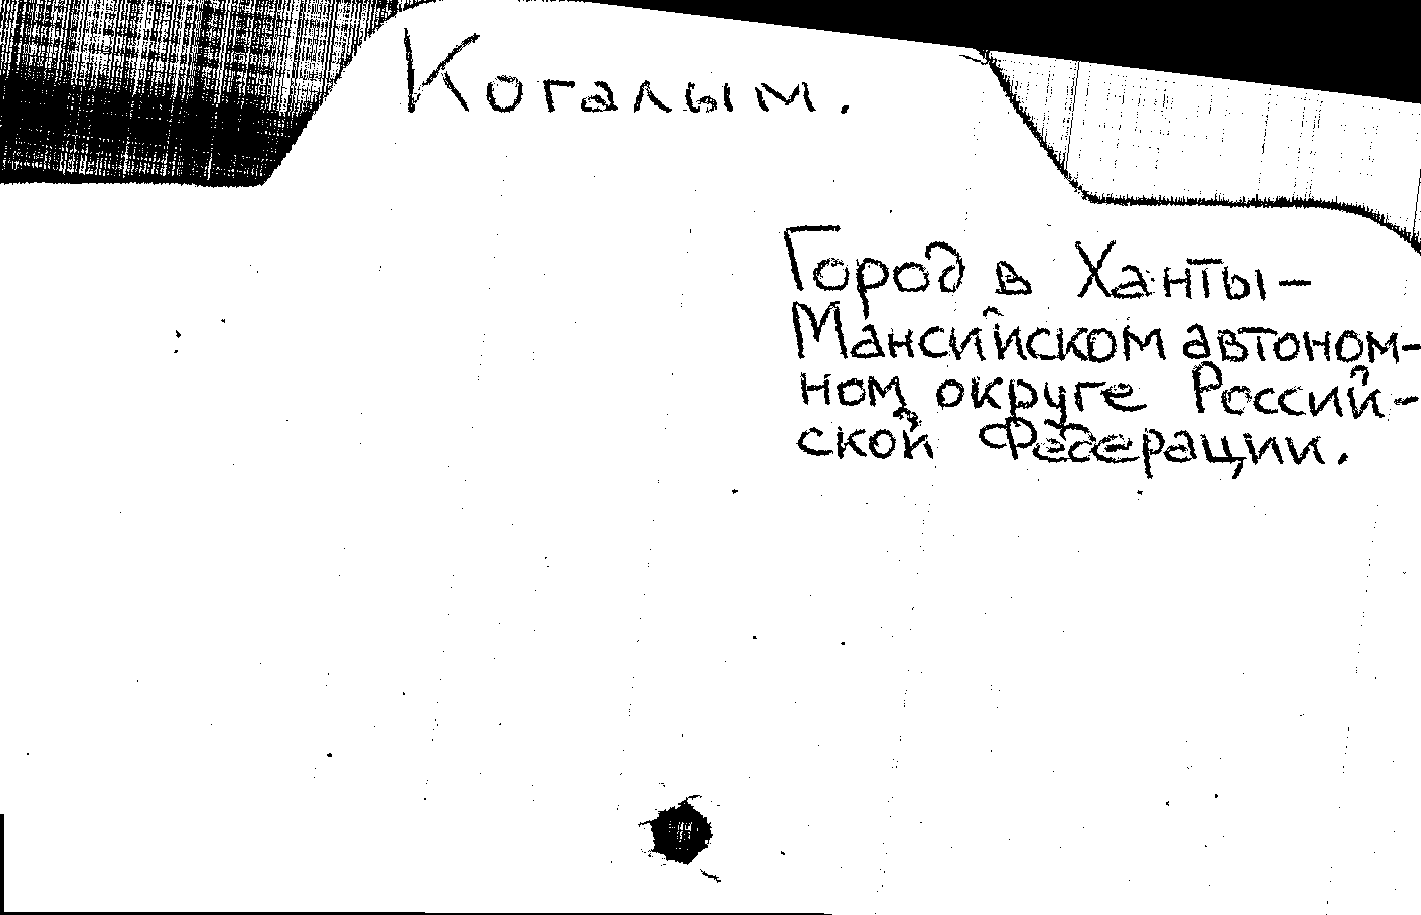 Когалым.
Город в Ханты-
Мансийском автоном-
ном округе Россий-
ской Федерации.